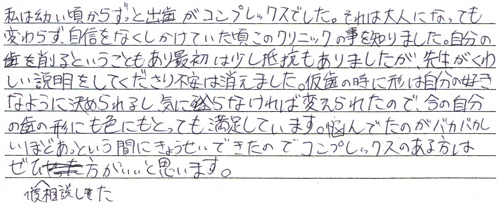 私は幼い頃からずっと出歯がコンプレックスでした。それは大人になっても
変わらず、自信をなくしかけていた頃このクリニックの事を知りました。自分の
歯を削るということもあり最初は少し抵抗もありましたが、先生がくわ
しい説明をしてくださり不安は消えました。仮歯の時に形は自分の好き
なように決められるし、気に入らなければ変えられたので、今の自分
の歯の形にも色にもとっても満足しています。悩んでたのがバカバカし
いほどあっという間にきょうせいできたのでコンプレックスのある方は
ぜひ方がいいと思います。
相談した